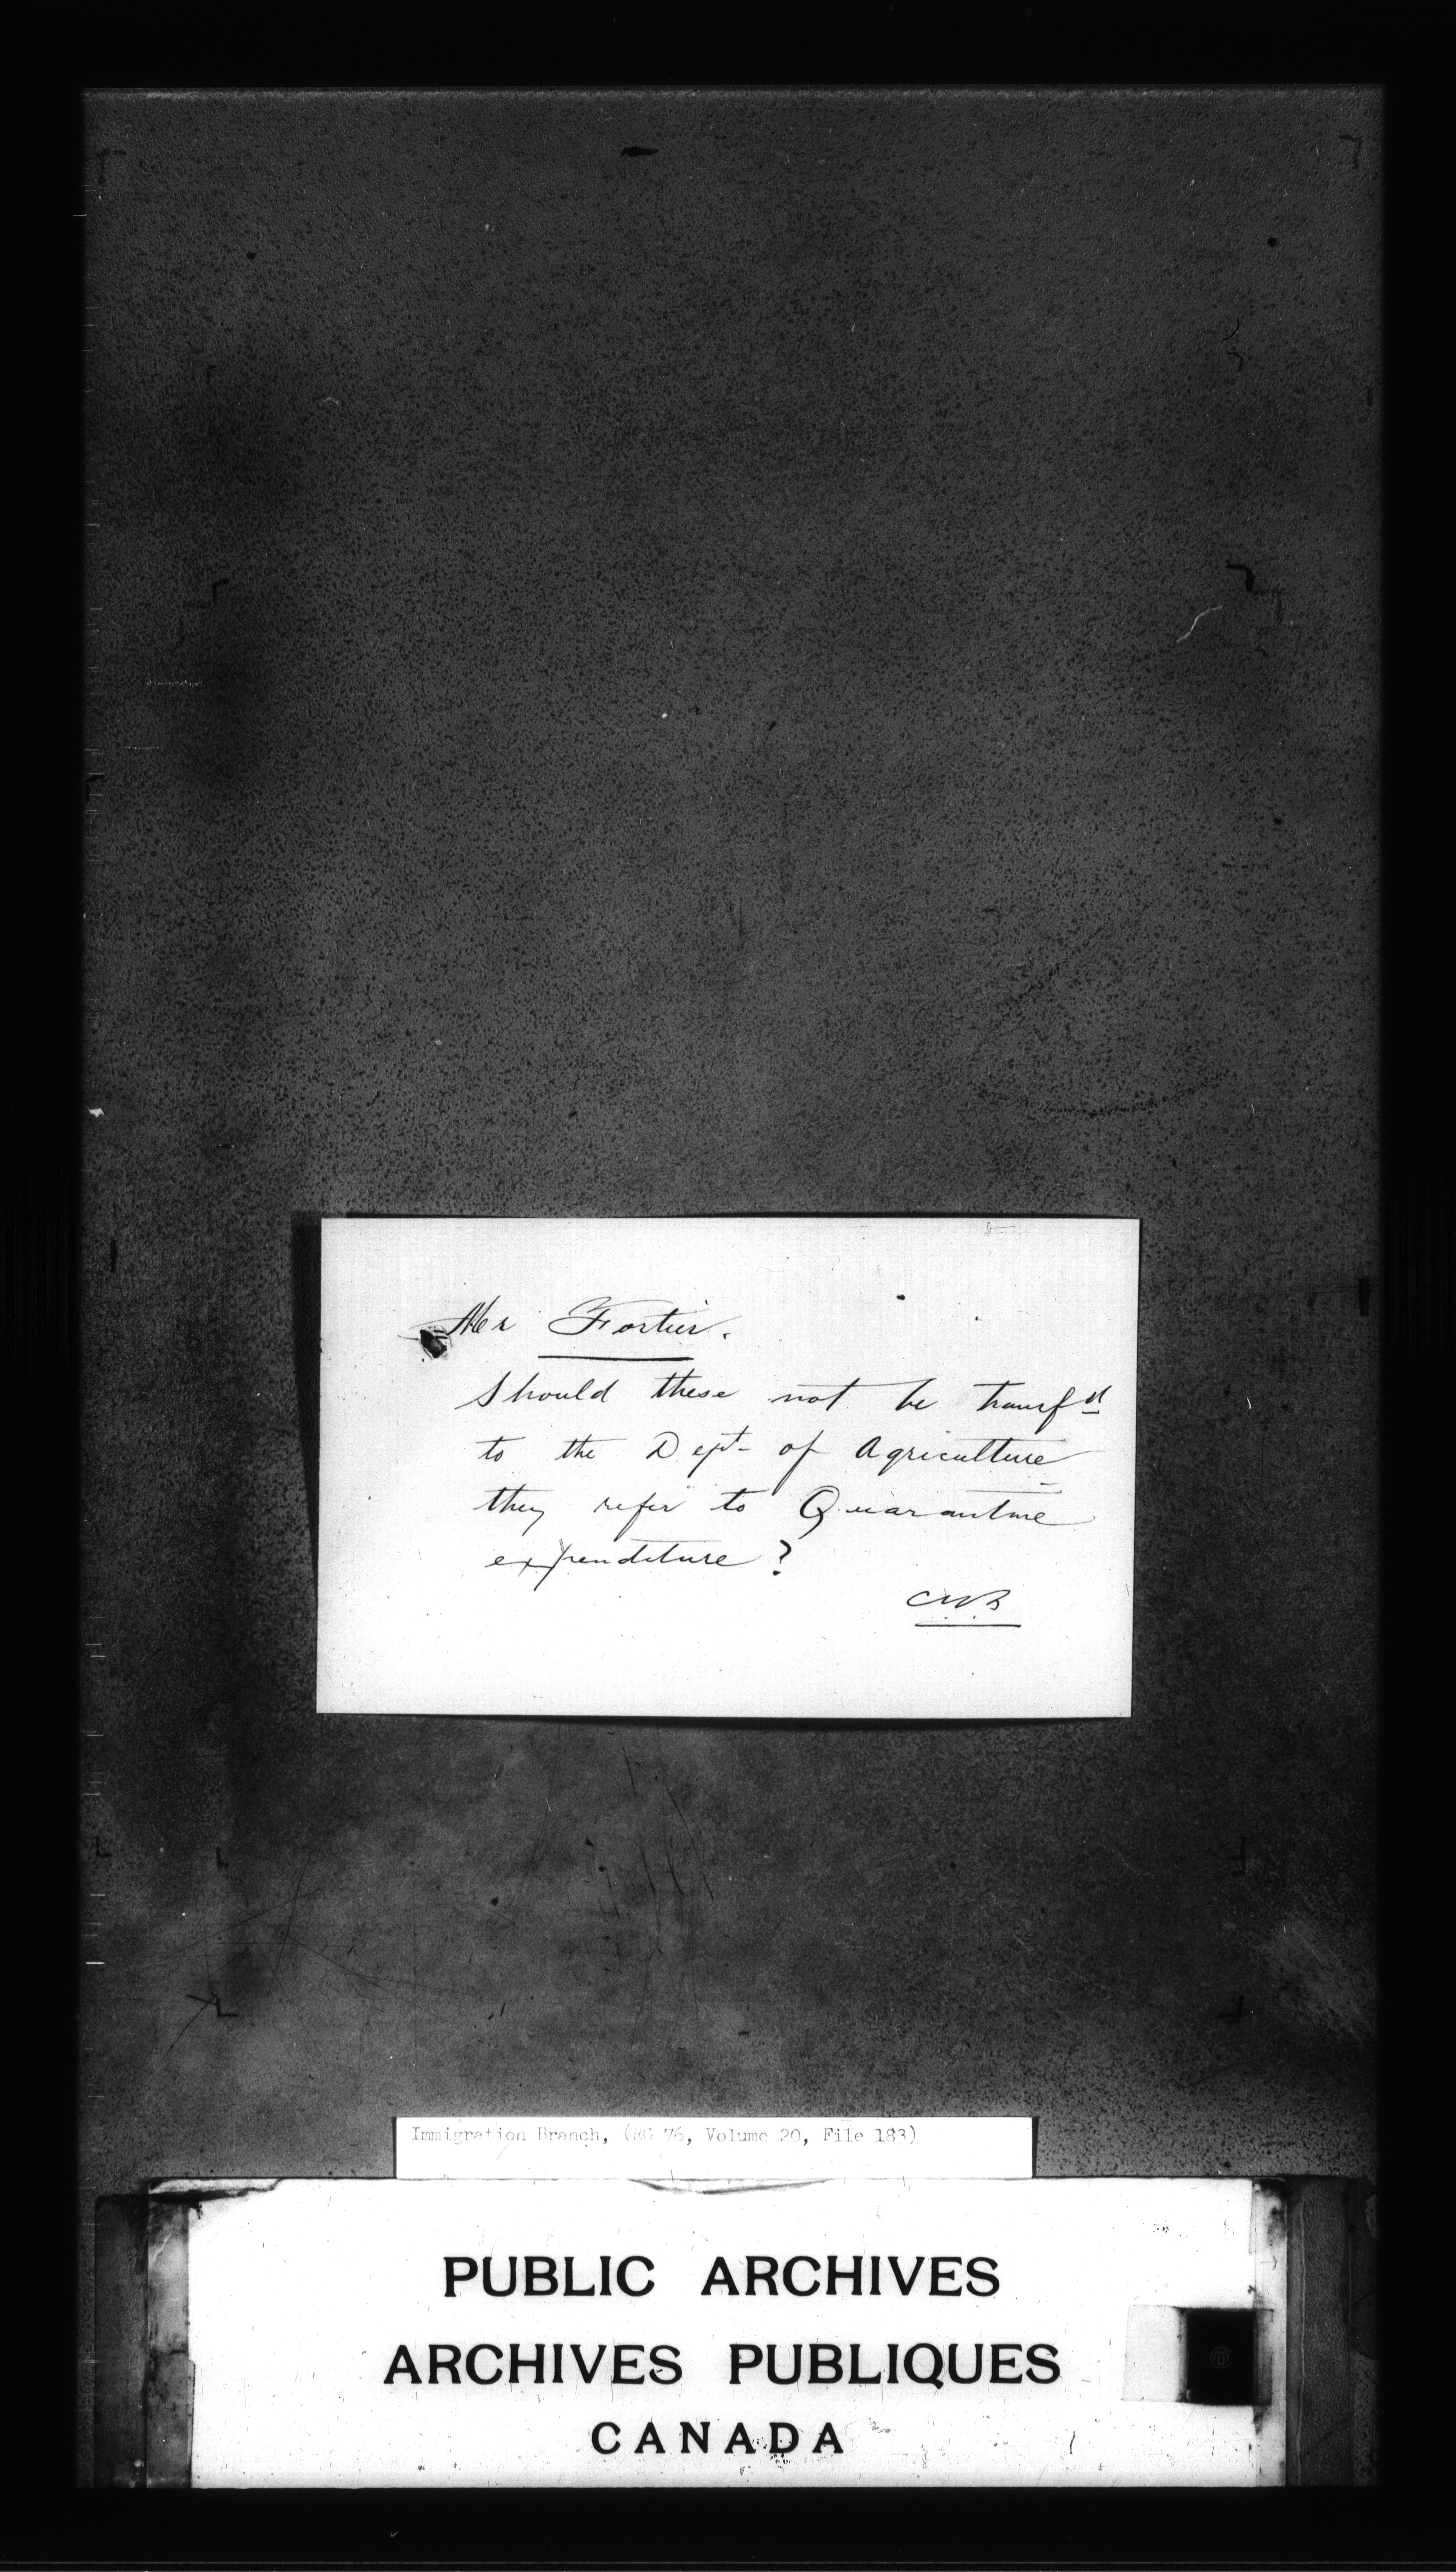 Mr Fortier.
Should these not be transfd
to the Dept of Agriculture
they refer to Quarantine
expenditure?
Immigration Branch, (RG 76, Volume 20, File 183)
PUBLIC ARCHIVES
ARCHIVES PUBLIQUES
CANADA